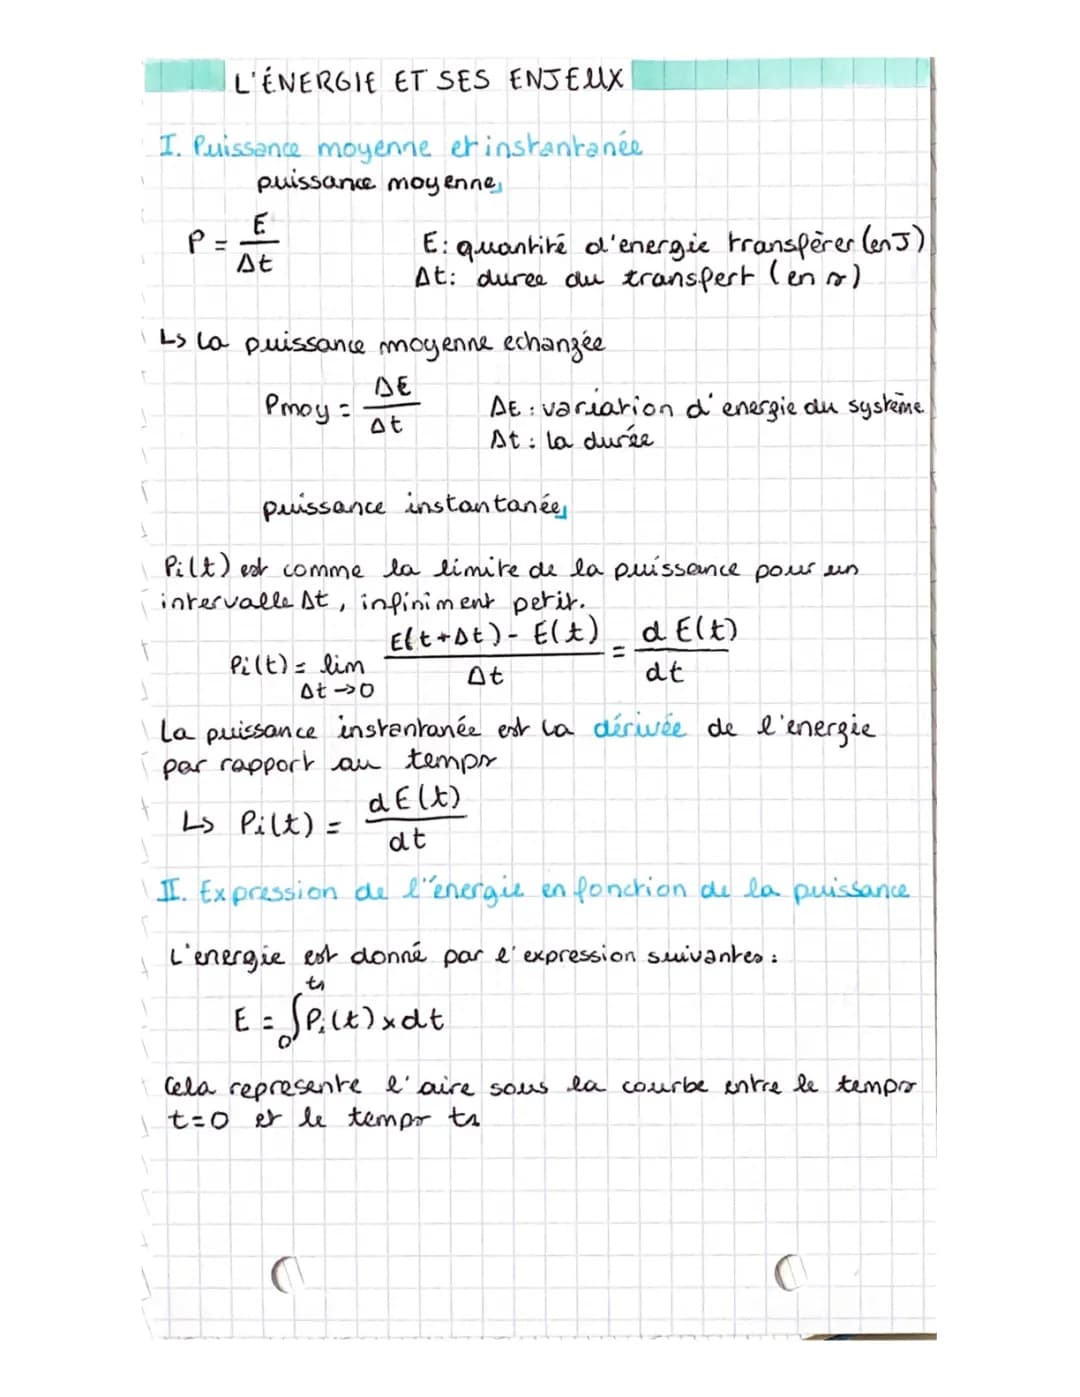 L'ÉNERGIE ET SES ENJEUX
I. Puissance moyenne et instantanée
puissance moyenne
P = E / Δt
E: quantité d'energie transpèrer (en J)
Δt: duree du transfert (en s)
↳ La puissance moyenne echangée
Pmoy = ΔE / Δt
ΔE : variation d'energie du système
Δt : la durée
puissance instantanée
Pi(t) est comme la limite de la puissance pour un
intervalle Δt, infiniment petit.
Pi(t) = lim Δt→0 E(t+Δt) - E(t) / Δt = d E(t) / dt
La puissance instantanée est la dérivée de l'energie
par rapport au temps
↳ Pi(t) = dE(t) / dt
II. Expression de l'énergie en fonction de la puissance
L'energie est donné par l'expression suivantes :
E = ∫₀^t1 Pi(t) x dt
Cela represente l'aire sous la courbe entre le temps
t=0 et le temps t1